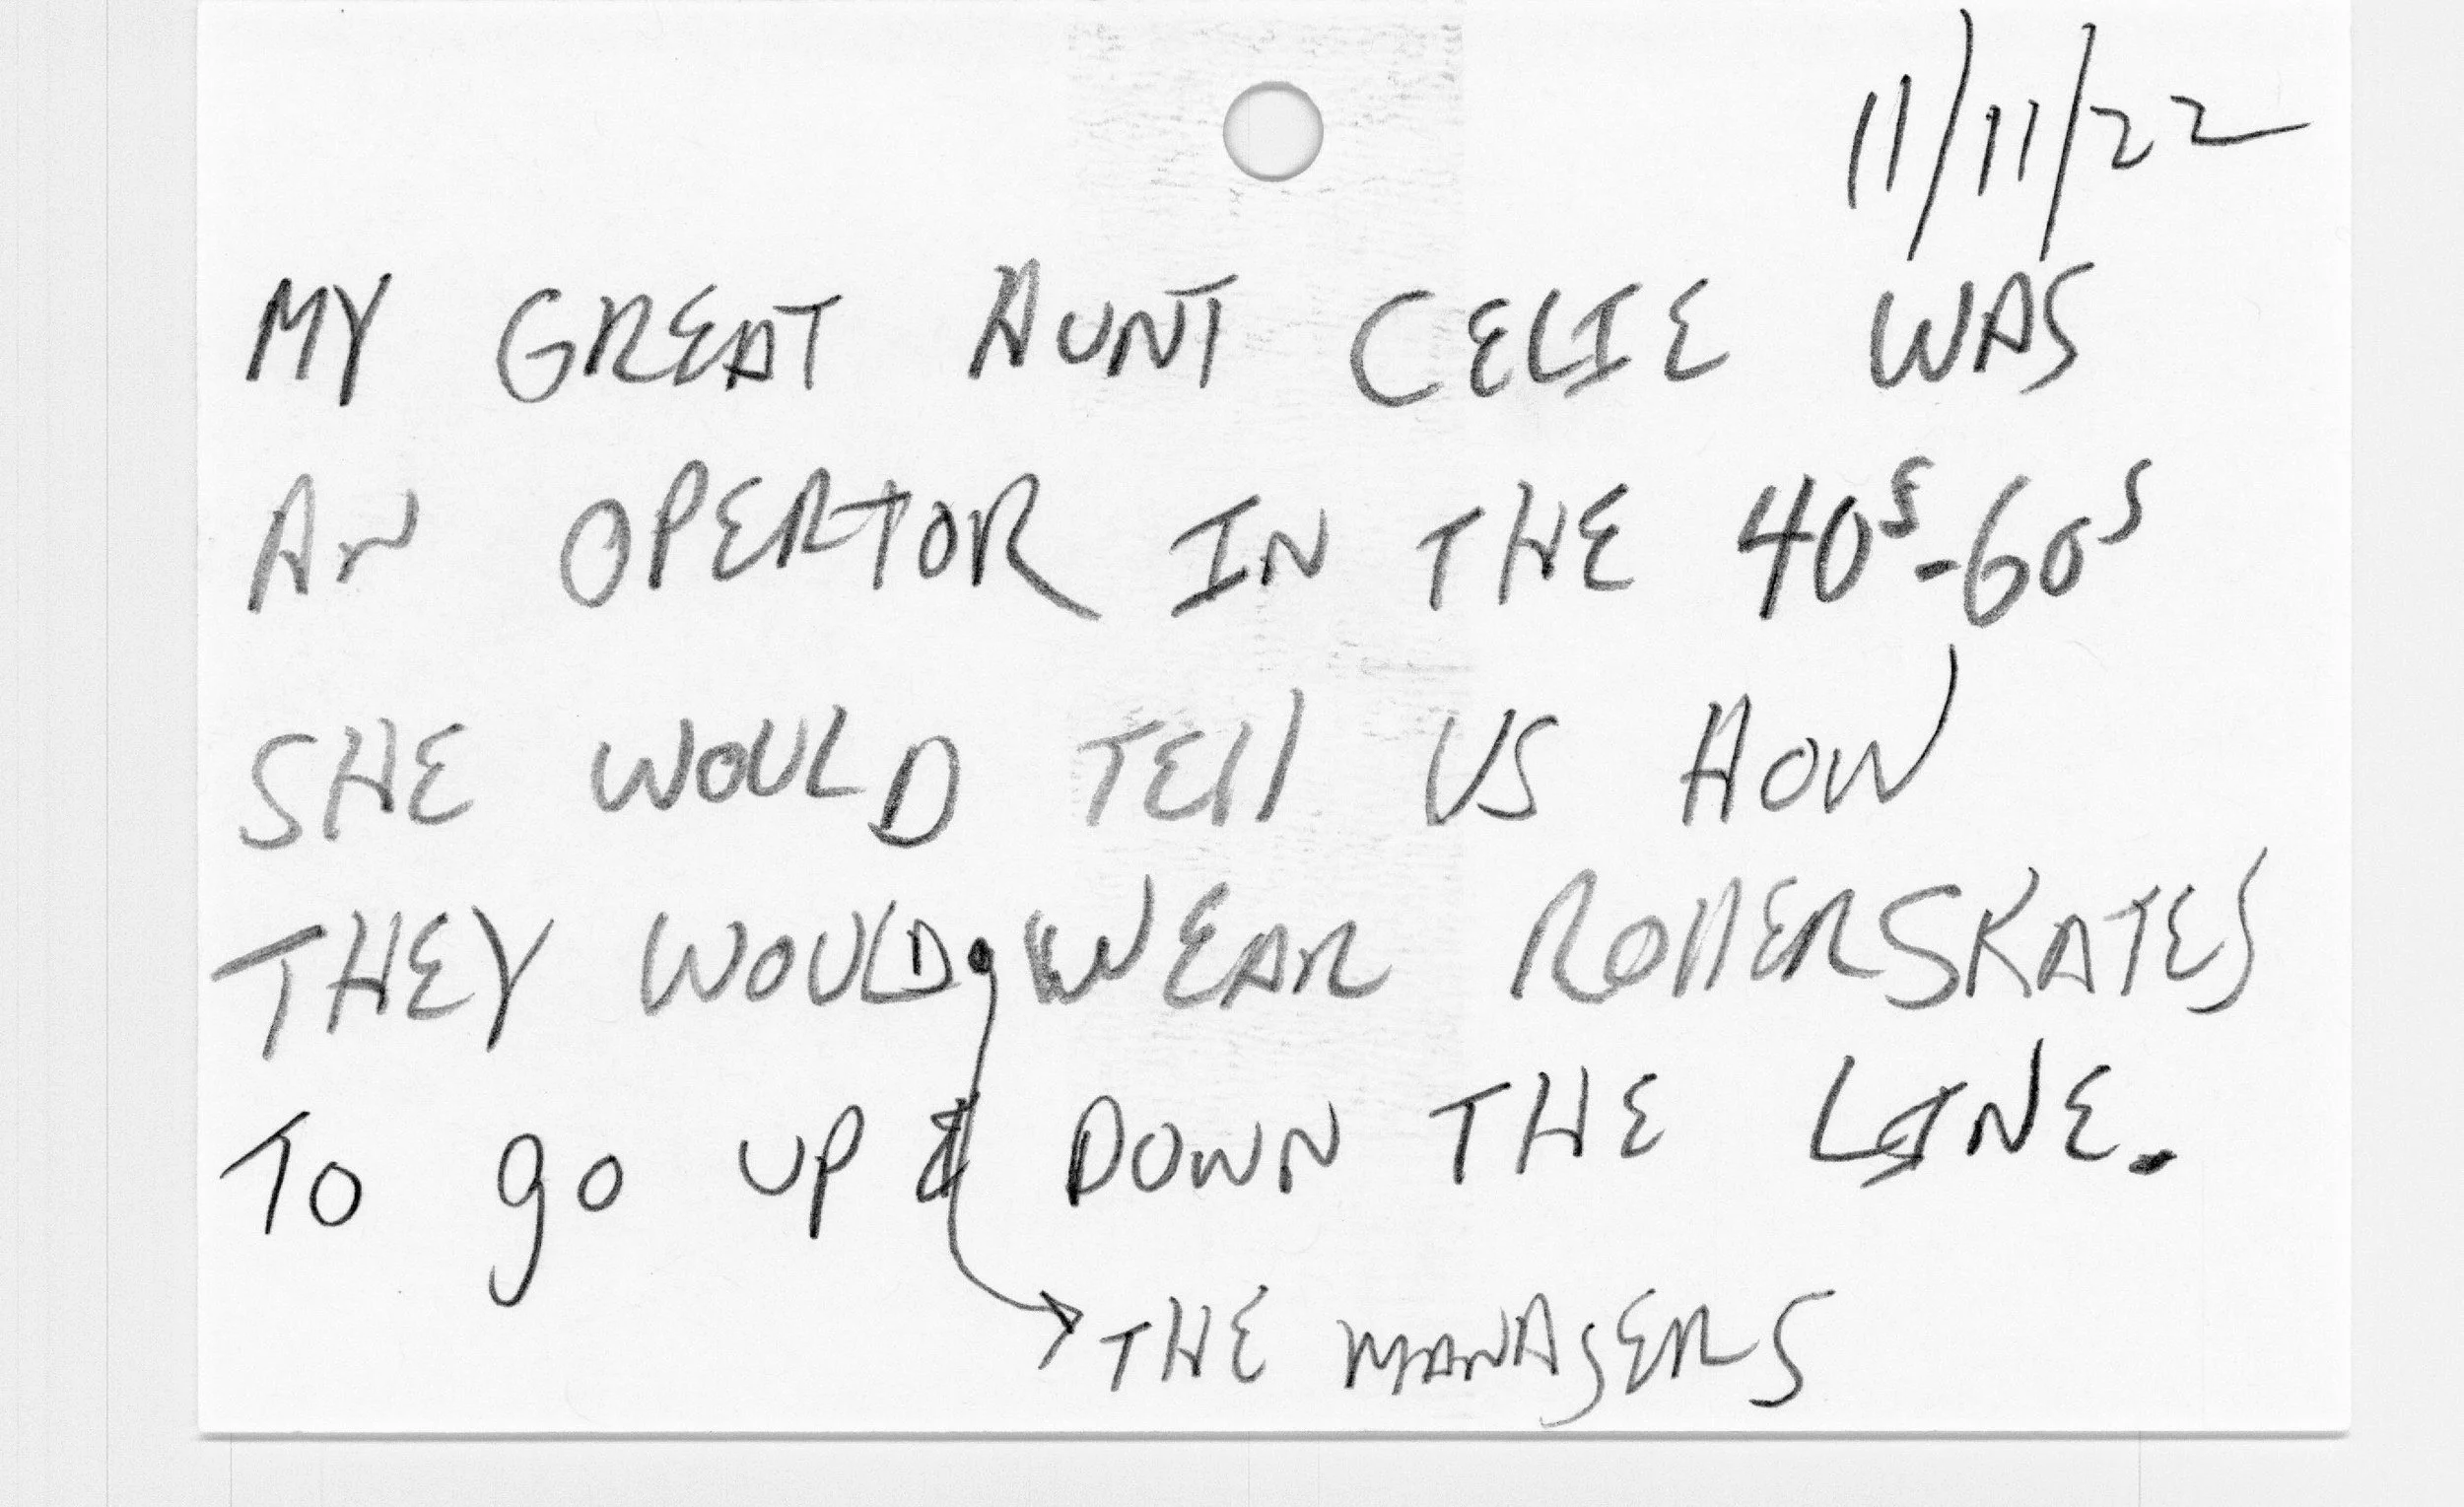 11/11/22
MY GREAT AUNT CELIE WAS
AN OPERTOR IN THE 40s-60s
SHE WOULD TELL US HOW
THEY WOULD WEAR ROLLERSKATES
TO go UP & DOWN THE LINE.
→ THE MANAGERS